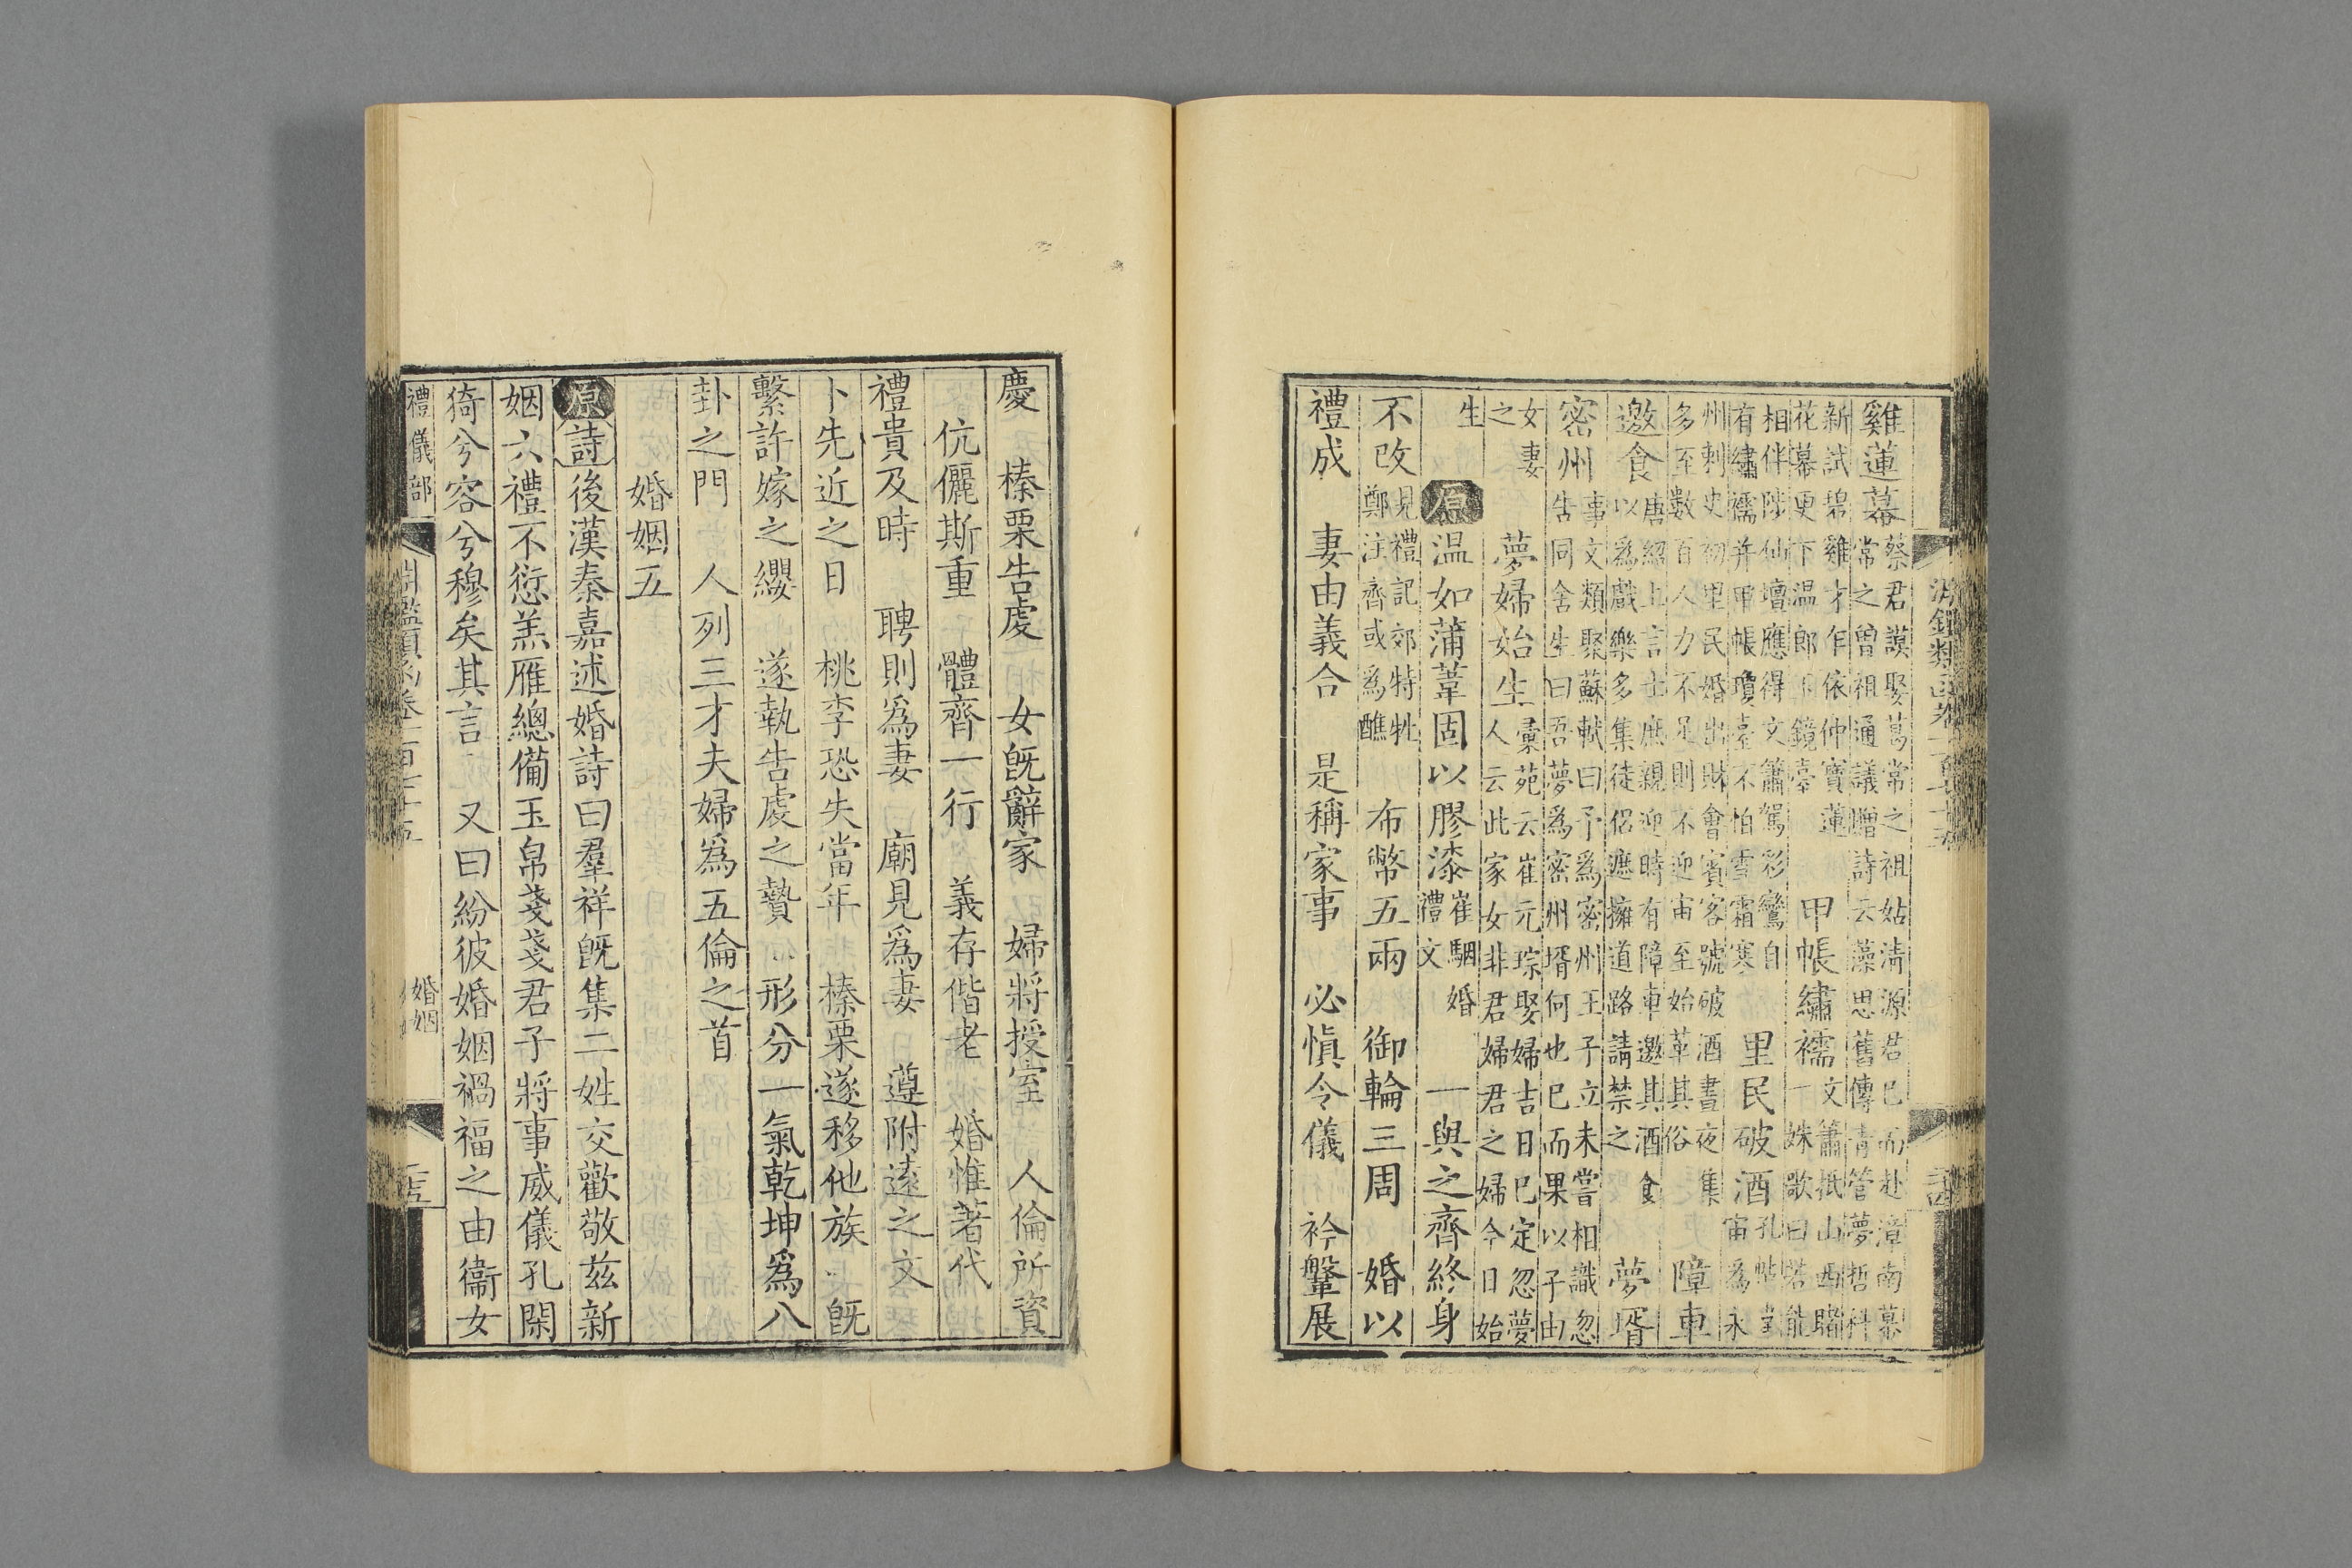 淵鑑類函卷一百七十五 十四
雞蓮幕 蔡君謨娶葛常之祖姑清源君已而赴漳南幕
常之曾祖通議贈詩云藻思舊傳青管夢哲科
新試碧雞才乍依仲寶蓮
花幕更下温郎玉鏡臺 甲帳繡襦 文簫抵山西睹
一姝歌曰若能
相伴陟仙壇應得文簫駕彩鸞自
有繡襦并甲帳瓊臺不怕雪霜寒 里民破酒 孔帖韋
宙爲永
州刺史初里民婚出財會賓客號破酒晝夜集
多至數百人力不足則不迎宙至始革其俗 障車
邀食 唐紹上言士庶親迎時有障車邀其酒食
以爲戲樂多集徒侶遮擁道路請禁之 夢壻
密州 事文類聚蘇軾曰予爲密州王子立未嘗相識忽
告同舍生曰吾夢爲密州壻何也已而果以子由
女妻
之 夢婦始生 彙苑云崔元琮娶婦吉日已定忽夢
人云此家女非君婦君之婦今日始
生 原 温如蒲葦固以膠漆 崔駰婚
禮文 一與之齊終身
不改 見禮記郊特牲
鄭注齊或爲醮 布幣五兩 御輪三周 婚以
禮成 妻由義合 是稱家事 必慎令儀 衿鞶展
慶 榛栗告虔 女旣辭家 婦將授室 人倫所資
伉儷斯重 體齊一行 義存偕老 婚惟著代
禮貴及時 聘則爲妻 廟見爲妻 遵附遠之文
卜先近之日 桃李恐失當年 榛栗遂移他族 旣
繫許嫁之纓 遂執告虔之贄 形分一氣乾坤爲八
卦之門 人列三才夫婦爲五倫之首
婚姻五
原 詩 後漢秦嘉述婚詩曰羣祥旣集二姓交歡敬兹新
姻六禮不愆羔雁總備玉帛戔戔君子將事威儀孔閑
猗兮容兮穆矣其言 又曰紛彼婚姻禍福之由衞女
禮儀部 淵鑑類函卷一百七十五 婚姻 十五